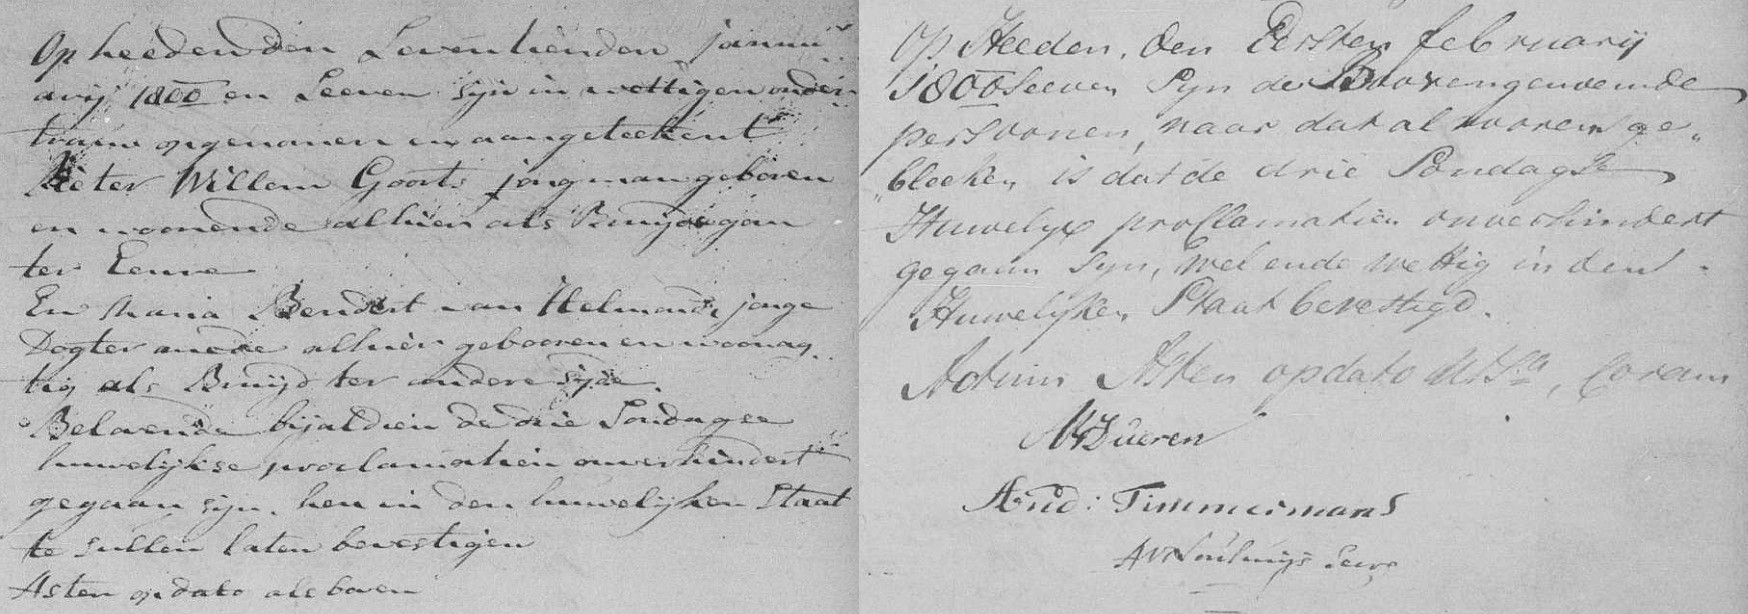 Op heeden den Seventienden januu
arij 1800 en Seeven sijn in wettigen onder
trouw opgenomen en aangeteekent
Pieter Willem Goorts jongman geboren
en woonende alhier als Bruijdegom
ter Eenre
En Maria Bendert van Helmond, jonge
Dogter meede alhier gebooren en woonag
tig als Bruijd ter andere sijde.
Belovende bijaldien de drie Sondagse
huwelijkse proclamatien onverhindert
gegaan sijn, hen in den huwelijken Staat
te sullen laten bevestigen
Asten op dato als boven
Op Heeden, den Eersten februarij
1800 Seeven Syn de Boovengenoemde
persoonen, naar dat al vooren ge„
„bleeken is dat de drie Sondagse
Huwelyx proclamatien onverhindert
gegaan Syn, Wel ende Wettig in den
Huwelyken Staat bevestigd.
Actum Asten op dato Uts.a, Coram
Dueren
And: Timmermans
Secrs